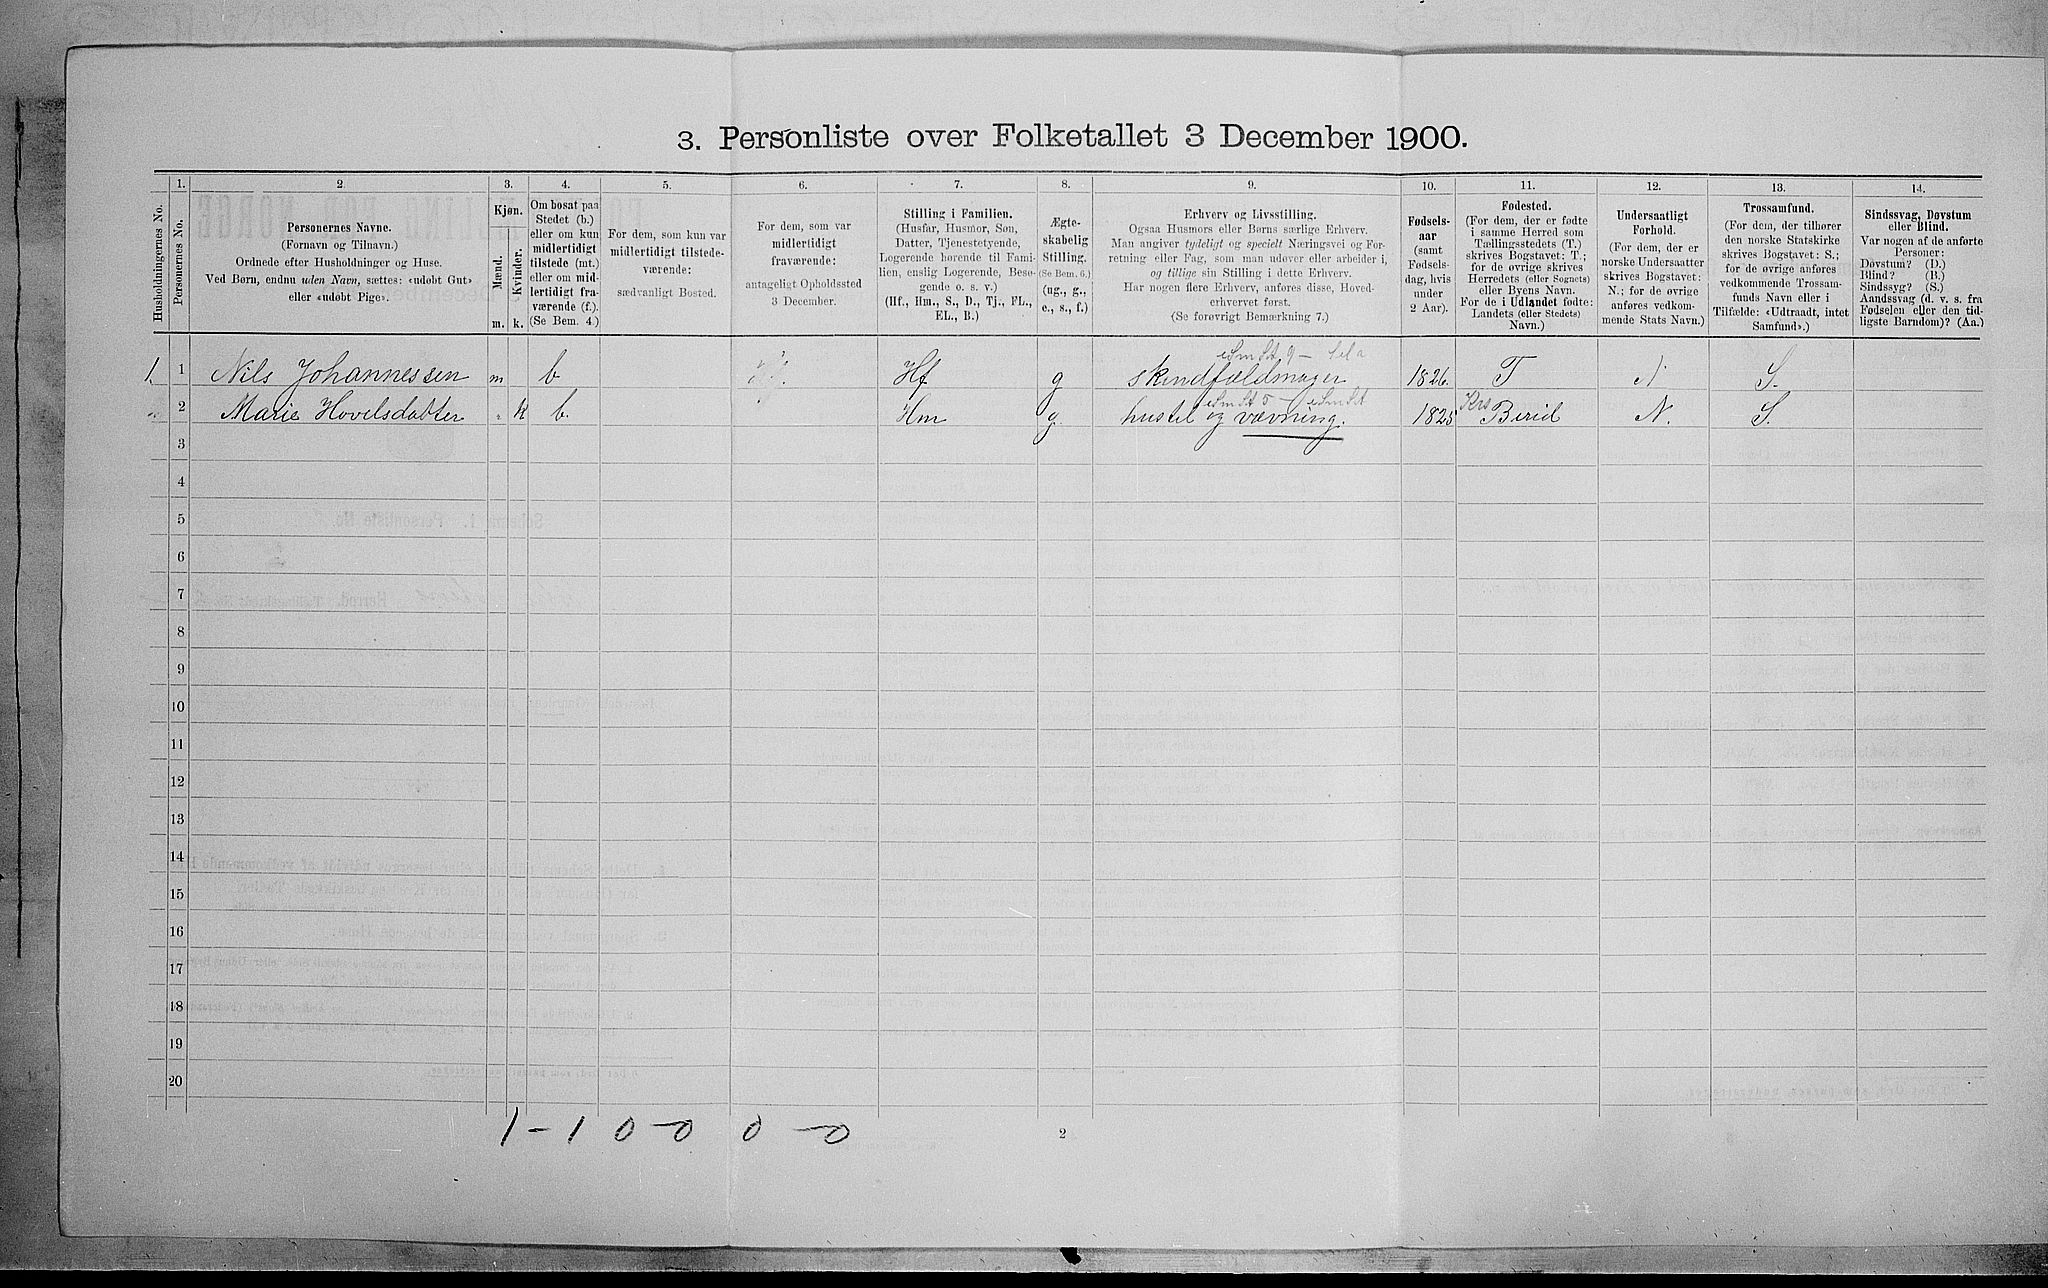 3. Personliste over Folketallet 3 December 1900.
Husholdningernes No.
1.
Personernes No.
2.
Personernes Navne.
(Fornavn og Tilnavn.)
Ordnede efter Husholdninger og Huse.
Ved Børn, endnu uden Navn, sættes: «udøbt Gut»
eller «udøbt Pige».
3.
Kjøn.
Mænd.
Kvinder.
m.
k.
4.
Om bosat paa
Stedet (b.)
eller om kun
midlertidigt
tilstede (mt.)
eller om mid-
lertidigt fra-
værende (f.).
(Se Bem. 4.)
5.
For dem, som kun var
midlertidigt tilstede-
værende:
sædvanligt Bosted.
6.
For dem, som var
midlertidigt
fraværende:
antageligt Opholdssted
3 December.
7.
Stilling i Familien.
(Husfar, Husmor, Søn,
Datter, Tjenestetyende,
Logerende hørende til Fami-
lien, enslig Logerende, Besø-
gende o. s. v.)
(Hf., Hm., S., D., Tj., FL.,
EL., B.)
8.
Ægte-
skabelig
Stilling.
(Se Bem. 6.)
(ug., g.,
e., s., f.)
9.
Erhverv og Livsstilling.
Ogsaa Husmors eller Børns særlige Erhverv.
Man angiver tydeligt og specielt Næringsvei og For-
retning eller Fag, som man udøver eller arbeider i,
og tillige sin Stilling i dette Erhverv.
Har nogen flere Erhverv, anføres disse, Hoved-
erhvervet først.
(Se forøvrigt Bemærkning 7.)
10.
Fødsels-
aar
(samt
Fødsels-
dag, hvis
under
2 Aar).
11.
Fødested.
(For dem, der er fødte
i samme Herred som
Tællingsstedets (T.)
skrives Bogstavet: T.;
for de øvrige skrives
Herredets (eller Sognets)
eller Byens Navn.
For de i Udlandet fødte:
Landets (eller Stedets)
Navn.)
12.
Undersaatligt
Forhold.
(For dem, der er
norske Undersaatter
skrives Bogstavet:
N.; for de øvrige
anføres vedkom-
mende Stats Navn.)
13.
Trossamfund.
(For dem, der tilhører
den norske Statskirke
skrives Bogstavet: S.;
for de øvrige anføres
vedkommende Trossam-
funds Navn eller i
Tilfælde: «Udtraadt, intet
Samfund».)
14.
Sindssvag, Døvstum
eller Blind.
Var nogen af de anførte
Personer:
Døvstum? (D.)
Blind? (B.)
Sindssyg? (S.)
Aandssvag (d. v. s. fra
Fødselen eller den tid-
ligste Barndom)? (Aa.)
1. 1 Nils Johannessen m b Hf g skindfældmager 1826. T N S.
2 Marie Hovelsdatter k b. Hm g. hustel og vævning. 1825 Birid N. S.
3
4
5
6
7
8
9
10
11
12
13
14
15
16
17
18
19
20
1 - 1 0 - 0 0 - 0
2